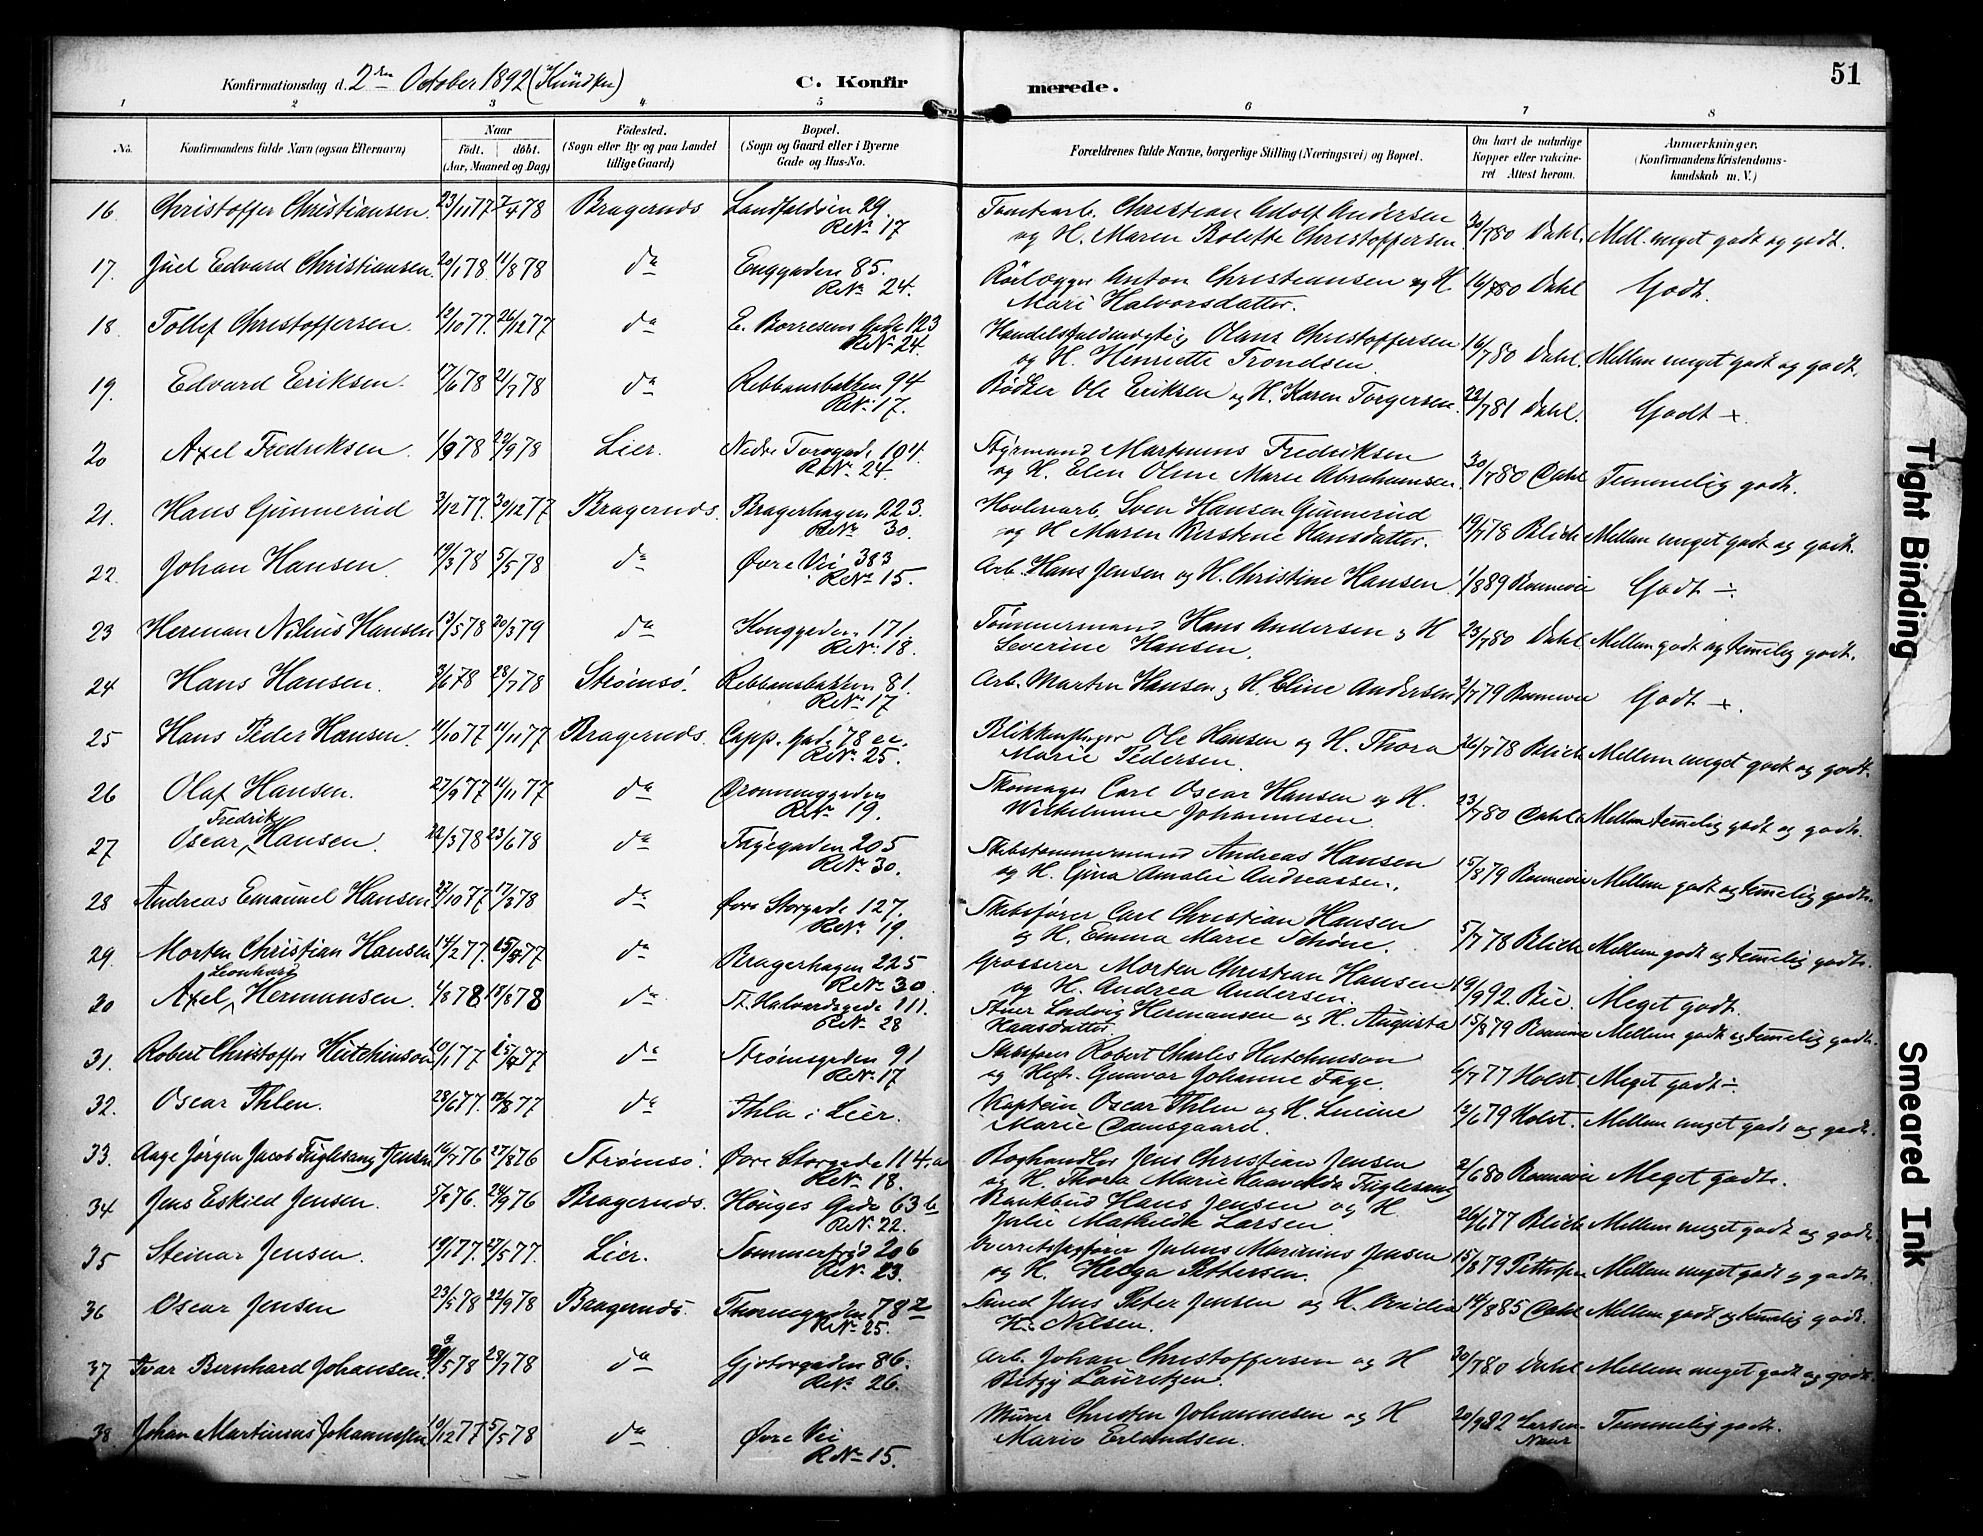 Konfirmationsdag d. 2den October 1892
C. Konfirmerede.
51
1 2 3 4 5 6 7 8
No.
Konfirmandens fulde Navn (ogsaa Efternavn)
Naar
födt. döbt.
(Aar, Maaned og Dag)
Födested.
(Sogn eller By og paa Landet
tillige Gaard)
Bopæl.
(Sogn og Gaard eller i Byerne
Gade og Hus-No.
Forældrenes fulde Navne, borgerlige Stilling (Næringsvei) og Bopæl.
Om havt de naturlige
Kopper eller vakcine-
ret Attest herom.
Anmærkninger.
(Konfirmandens Kristendoms-
kundskab m. V.)
16. Christoffer Christiansen. 23/11 77 7/4 78 Bragernds Landfaldöen 29. Tomtearb. Christian Adolf Andersen 30/7 80 Dahl. Mell. meget godt og godt.
R.No. 17 og H. Maren Bolette Christoffersen
17. Juel Edvard Christiansen. 20/1 78 11/8 78 da Enggaden 85. Rörlægger Anton Christiansen og H. 16/7 80 Dahl Godt.
R.No. 24. Mari Halvorsdatter.
18. Tollef Christoffersen. 12/10 77. 26/12 77 da E. Borresens Gade 123 Handelsfuldmægtig Olaus Christoffersen 16/7 80 Dahl Mellem meget godt og godt.
R.No. 24 og H. Henriette Trondsen.
19. Edvard Eriksen. 17/6 78 21/7 78 da Rebbansbakken 94 Bödker Ole Eriksen og H. Karen Torgersen. 22/7 81 Dahl. Godt +
R.No. 17.
20 Axel Fredriksen. 1/9 78 29/9 78 Lier. Nedre Torvgade 104. Styrmand Martinus Fredriksen 30/7 80 Dahl Temmelig godt.
R.No. 24. og H. Elen Oline Marie Abrahamsen.
21. Hans Gunnerud 3/12 77. 30/12 77 Bragernds. Bragerhagen 223. Hövleriarb. Sven Hansen Gunnerud 19/7 78 Blich Mellem meget godt og godt.
R.No. 30. og H. Maren Kirstine Hansdatter.
22. Johan Hansen 19/3 78 5/5 78 da Øvre Vei 383 Arb. Hans Jensen og H. Christine Hansen 1/8 89 Godt ÷
R.No. 15.
23 Herman Nilius Hansen 13/5 78 20/3 79 da Konggaden 171 Tömmermand Hans Andersen og H 23/7 80 Dahl Mellem godt og temelig godt.
R.No. 18. Severine Hansen.
24 Hans Hansen. 3/6 78 28/7 78 Strømsö. Rebbansbakken 81. Arb. Martin Hansen og H. Eline Andersen 2/7 79 Godt +.
R.No. 17
25 Hans Peder Hansen. 4/10 77 11/11 77 Bragernds. Capp. Gad. 78 Blikkenslager Ole Hansen og H. Thora 26/7 78 Blich Mellem meget godt og godt.
R.No. 25. Marie Pedersen.
26 Olaf Hansen. 27/9 77 11/11 77 da Dronninggaden Skomager Carl Oscar Hansen og H. 23/7 80 Dahl Mellem temelig godt og godt.
R.No. 19. Wilhelmine Johannesen.
27 Oscar Fredrik Hansen. 22/3 78 23/6 78 da Tagegaden 205 Skibstømmermand Andreas Hansen 15/8 79 Mellem godt og temelig godt.
R.No. 30. og H. Gina Amalie Andreassen.
28 Andreas Emanuel Hansen 27/10 77 17/3 78 da Øvre Storgade 127. Skibsfører Carl Christian Hansen 5/7 78 Blich Mellem godt og temelig godt.
R.No. 19. og H. Emma Marie Schöne.
29. Morten Christian Hansen 14/2 77. 77 da Bragerhagen 225 Grosserer Morten Christian Hansen 19/9 92. Bie. Meget godt.
R.No. 30 og H. Andrea Andersen.
30 Axel Leonhard Hermansen. 4/8 78 18/8 78 da St. Halvardsgade 111. Stuer Ludvig Hermansen og H. Augusta 15/8 79 Mellem godt og temelig godt.
R.No. 28 Hansdatter
31. Robert Christoffer Hutchinson 10/1 77 77 da Strømsgaden 91 Skibsfører Robert Charles Hutchinson 6/7 77 Holst. Meget godt ÷
R.No. 17 og H. Gunvor Johanne Fage.
32. Oscar Ihlen. 28/6 77. 12/8 77 da Ihle i Lier. Kaptein Oscar Ihlen og H. Lucine 12/6 79 Holst. Mellem meget godt og godt.
Marie Damsgaard.
33. Aage Jørgen Jacob Fuglesang Jensen 16/7 76 27/8 76 Strømsö. Øvre Storgade 114. a Boghandler Jens Christian Jensen 2/6 80 Meget godt.
R.No. 18. og H. Thora Marie Fuglesang
34 Jens Eskild Jensen. 5/8 76. 24/9 76 Bragernds. Hauges Gade 63 b Bankbud Hans Jensen og H. 26/6 77 Blich Mellem meget godt og godt.
R.No. 22. Julie Mathilde Larsen
35 Steinar Jensen. 19/1 77. 27/5 77. Lier. Sommerfrød 206 Overretssagfører Julius Marinius Jensen 15/8 79 Mellem meget godt og godt.
R.No. 23. og H. Helga Pettersen.
36 Oscar Jensen 23/5 78 22/9 78 Bragernds. Thornegaden 78 Smed Jens Peter Jensen og H. 14/8 85 Dahl Mellem godt og temelig godt.
R.No. 25. Nilsen.
37 Ivar Bernhard Johansen. 5 78 28/7 78 da Gjetergaden 86. Arb. Johan Christoffersen og H 30/7 80 Dahl Mellem meget godt og godt.
R.No. 26. Betzy Lauritzen.
38. Johan Martinius Johannesen 10/12 77 5/5 78 da Øvre Vei Murer Christen Johannesen og H 20/9 82 Larsen Temmelig godt.
R.No. 15. Marie Erlandsen. Naur
Tight Binding
Smeared Ink